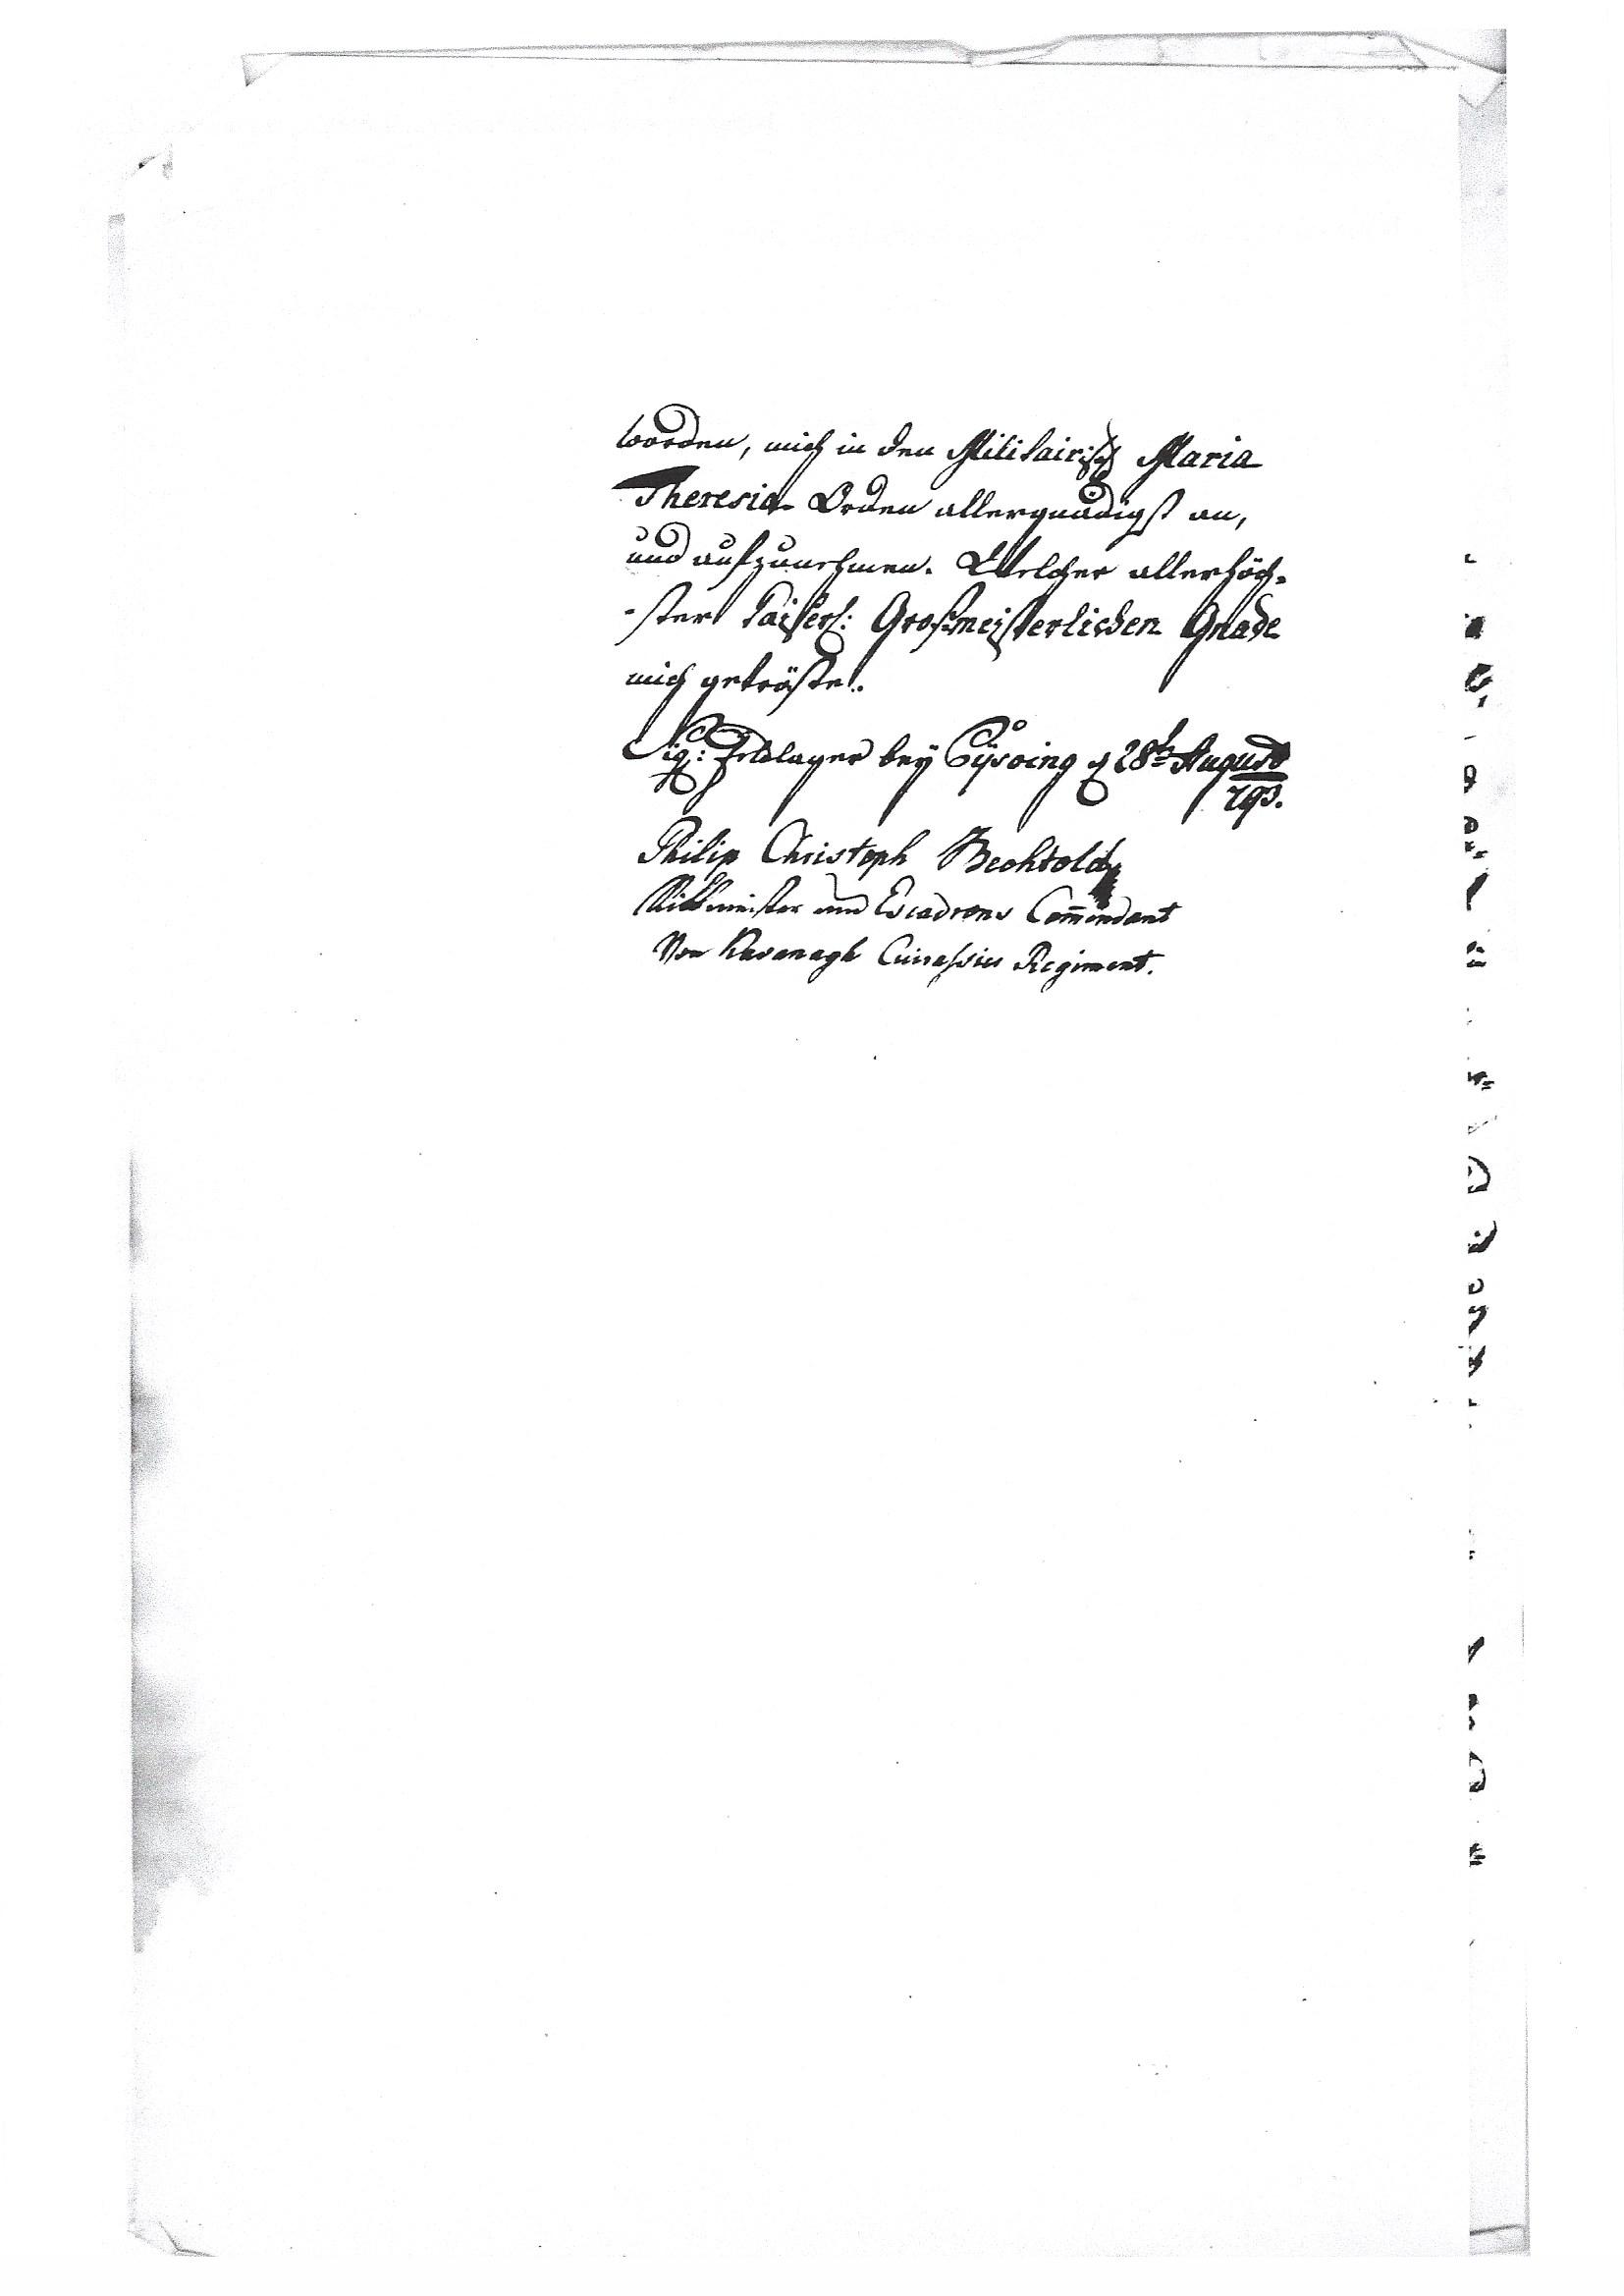 worden, mich in den Militairisch Maria
Theresia Orden allergnädigst an,
und aufzunehmen. Welcher allerhöch-
-ster Kaiserl: Großmeisterlichen Gnade
mich getröste.
Sig: Feldlager bey Cysoing d 28t August
793.
Philip Christoph Bechtold
Rittmeister und Escadrons Com̄endant
Von Kavanagh Cuirassier Regiment.